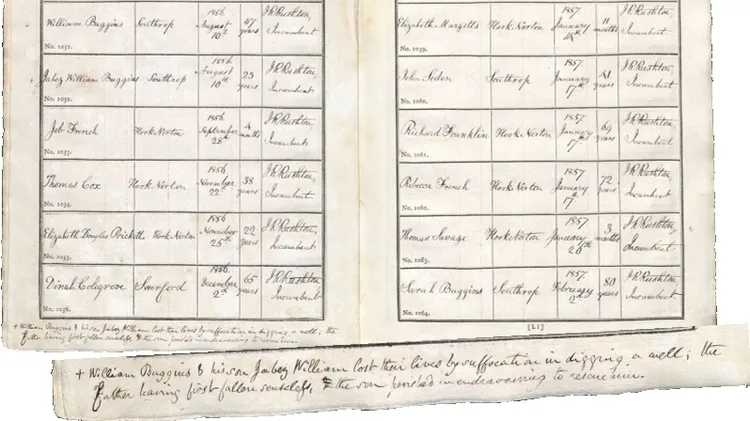 William Buggins Southrop 1856 August 10th 47 years J R Rushton, Incumbent
No. 1051.
+ Jabez William Buggins Southrop 1856 August 10th 23 years J R Rushton, Incumbent
No. 1052.
Job French Hook Norton 1856 September 28th 4 months J R Rushton, Incumbent
No. 1053.
Thomas Cox Hook Norton 1856 November 22nd 38 years J R Rushton, Incumbent
No. 1054.
Elizabeth Douglas Prickett Hook Norton 1856 November 25th 22 years J R Rushton, Incumbent
No. 1055.
Dinah Colegrove Swerford 1856 December 2nd 65 years J R Rushton, Incumbent
No. 1056.
+ William Buggins & his son Jabez William lost their lives by suffocation in digging a well; the
father having first fallen senseless, & the son perished in endeavouring to rescue him.
Elizabeth Margetts Hook Norton 1857 January 11 months J R Rushton, Incumbent
No. 1059.
John Soden Southrop 1857. January 17th 41 years J R Rushton, Incumbent
No. 1060.
Richard Franklin Hook Norton 1857 January 69 years J R Rushton, Incumbent
No. 1061.
Rebecca French Hook Norton 1857 January 17th 72 years J R Rushton, Incumbent
No. 1062.
Thomas Savage Hook Norton 1857. January 20th 3 months J R Rushton, Incumbent
No. 1063.
Sarah Buggins Southrop 1857. February 80 years J R Rushton, Incumbent
No. 1064.
[L1]
+ William Buggins & his son Jabez William lost their lives by suffocation in digging a well; the
father having first fallen senseless, & the son perished in endeavouring to rescue him.